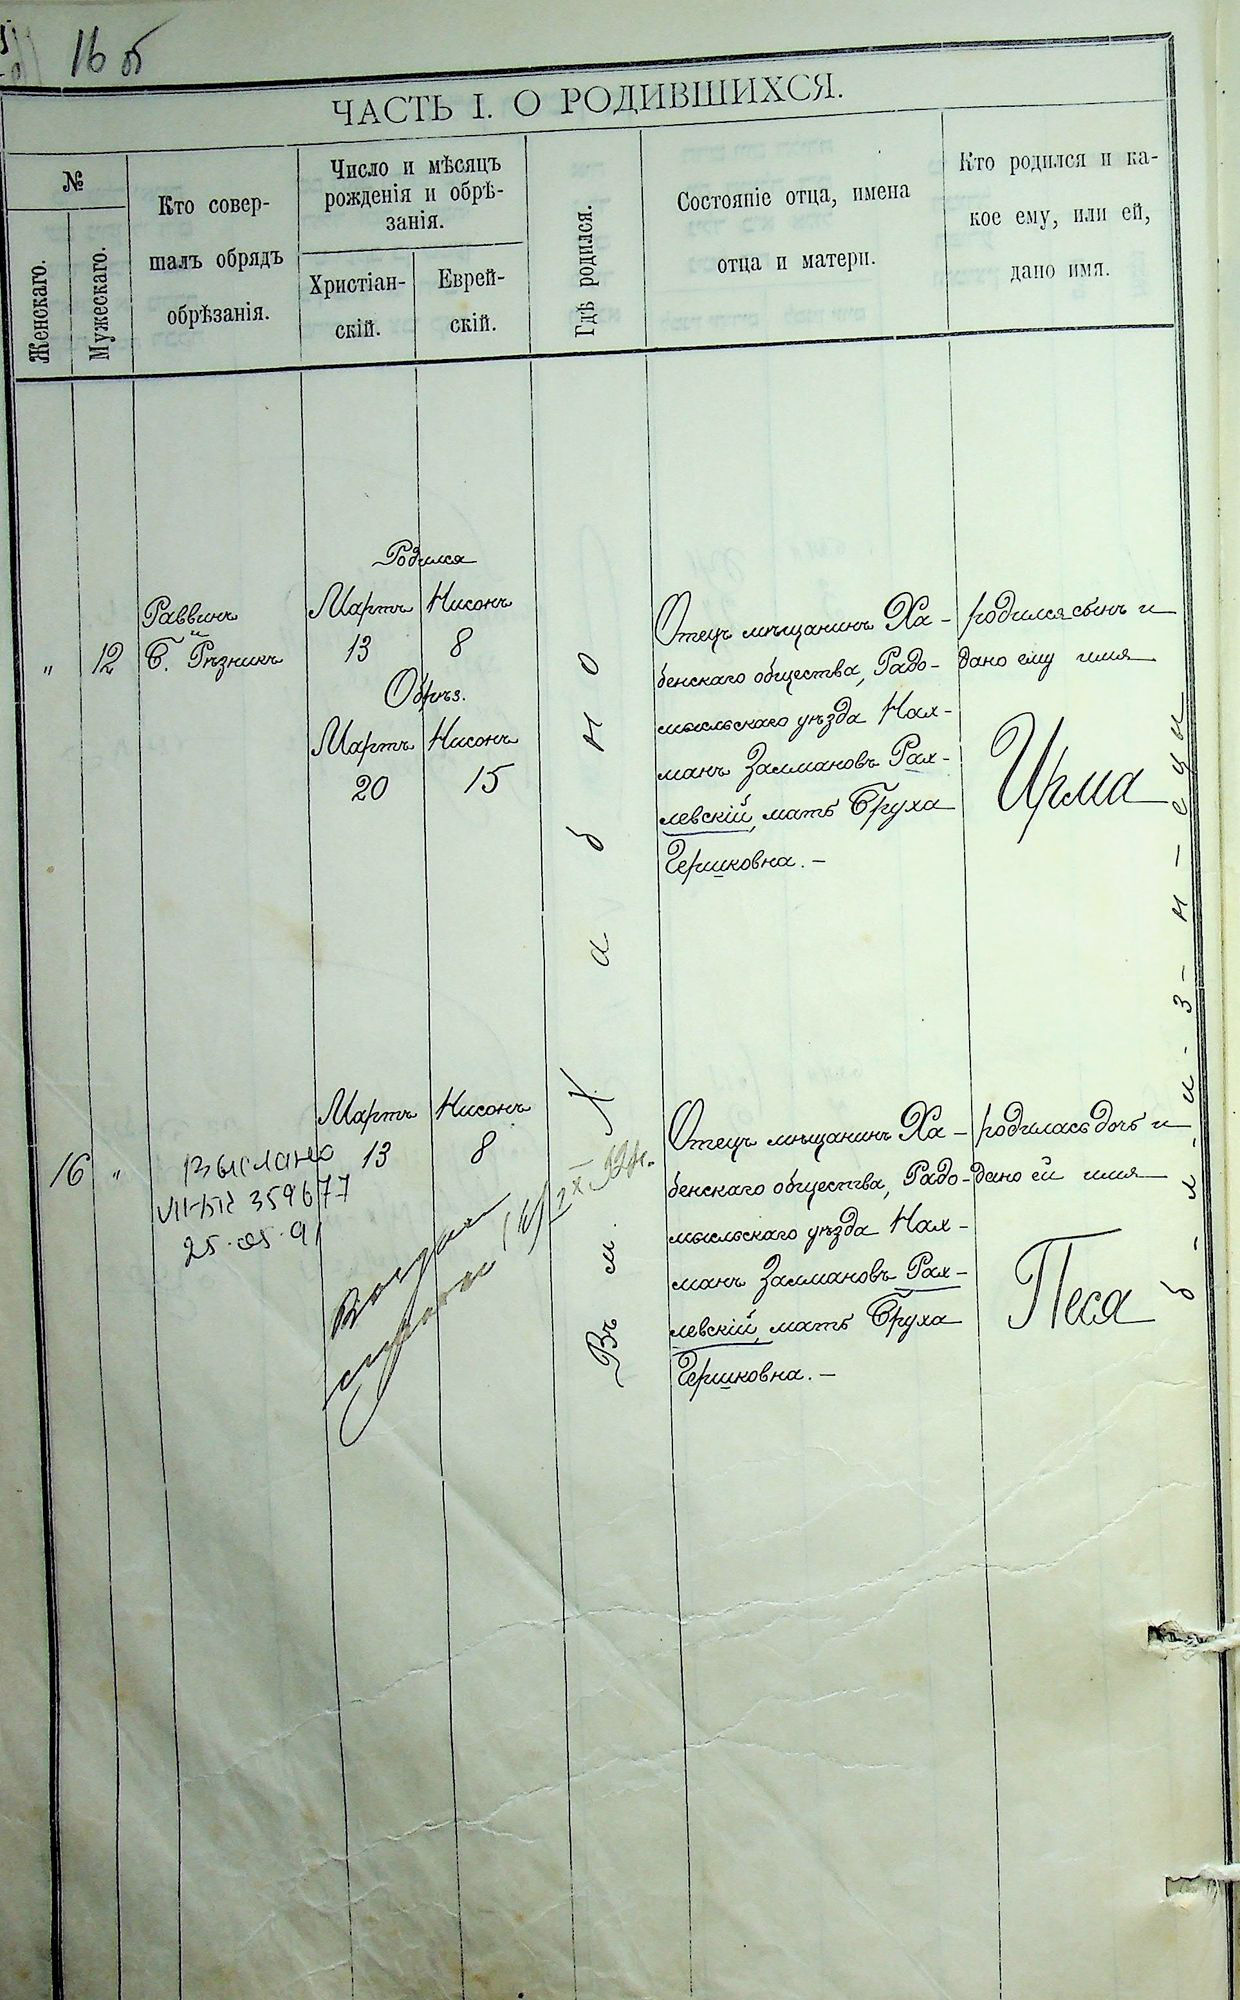 16 об
ЧАСТЬ I. О РОДИВШИХСЯ.
№
Женскаго.
Мужескаго.
Кто совер-
шалъ обрядъ
обрѣзанія.
Число и мѣсяцъ
рожденія и обрѣ-
занія.
Христіан-
скій.
Еврей-
скій.
Гдѣ родился.
Состояніе отца, имена
отца и матери.
Кто родился и ка-
кое ему, или ей,
дано имя.
„ 12
Раввинъ
и
Б. Рѣзникъ
Родился
Мартъ Нисонъ
13 8
Обрѣз.
Мартъ Нисонъ
20 15
Въ м. Хабно
Отецъ мѣщанинъ Ха-
бенскаго общества, Радо-
мысльскаго уѣзда Нах-
манъ Залмановъ Рах-
левскій, мать Бруха
Гершковна. –
родился сынъ и
дано ему имя
Ирма
б-л-и-з-н-ецы
16 „
Выслано
VII-БК 359677
25.05.91
Мартъ Нисонъ
13 8
Отецъ мѣщанинъ Ха-
бенскаго общества, Радо-
мысльскаго уѣзда Нах-
манъ Залмановъ Рах-
левскій, мать Бруха
Гершковна. –
родилась дочь и
дано ей имя
Песя